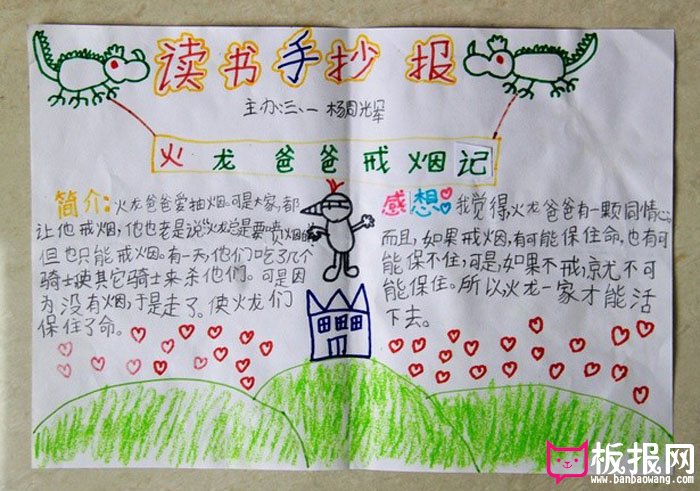 读书手抄报
主办:三、一 杨周光军
火龙爸爸戒烟记
简介:火龙爸爸爱抽烟。可是大家,都
让他戒烟,他也老是说"火龙总是要喷烟
但也只能戒烟。有一天,他们吃了几个
骑士,使其它骑士来杀他们。可是因
为没有烟,于是走了。使火龙们
保住了命。
感想:我觉得,火龙爸爸有一颗同情心。
而且,如果戒烟,有可能保住命,也有可
能保不住,可是,如果不戒,就尤不可
能保住。所以,火龙一家才能活
下去。
板报网
www.banbaowang.com